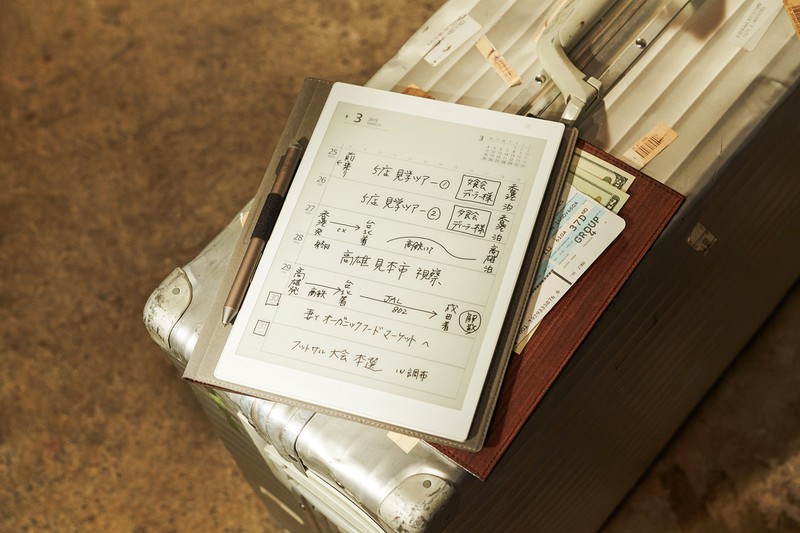 3
3
25
前乗り
S店 見学ツアー①
夕食会
ディーラー様
香港泊
26
S店 見学ツアー②
夕食会
ディーラー様
香港泊
27
香港発
CX
台北着
高鉄にて
高雄泊
28
高雄 見本市 視察
29
高雄発
高鉄
台北着
JAL
802
成田着
解散
30
妻と オーガニックフード マーケット へ
31
フットサル 大会 本選 in 調布
37D
GROUP
4